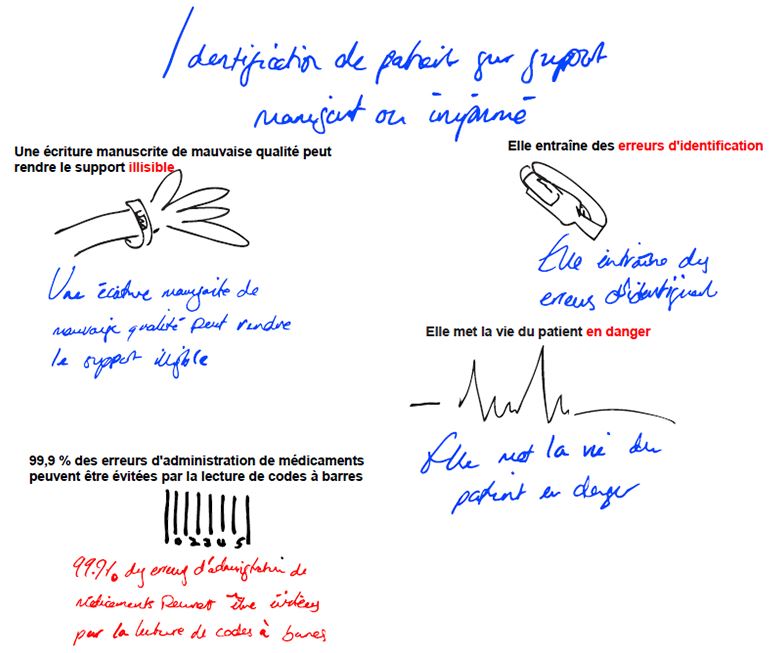 Identification de patient sur support
manuscrit ou imprimé
Une écriture manuscrite de mauvaise qualité peut
rendre le support illisible
Une écriture manuscrite de
mauvaise qualité peut rendre
le support illisible
Elle entraîne des erreurs d'identification
Elle entraîne des
erreurs d'identification
Elle met la vie du patient en danger
Elle met la vie du
patient en danger
99,9 % des erreurs d'administration de médicaments
peuvent être évitées par la lecture de codes à barres
0 2 3 4 5
99.9% des erreurs d'administration de
médicaments peuvent être évitées
par la lecture de codes à barres